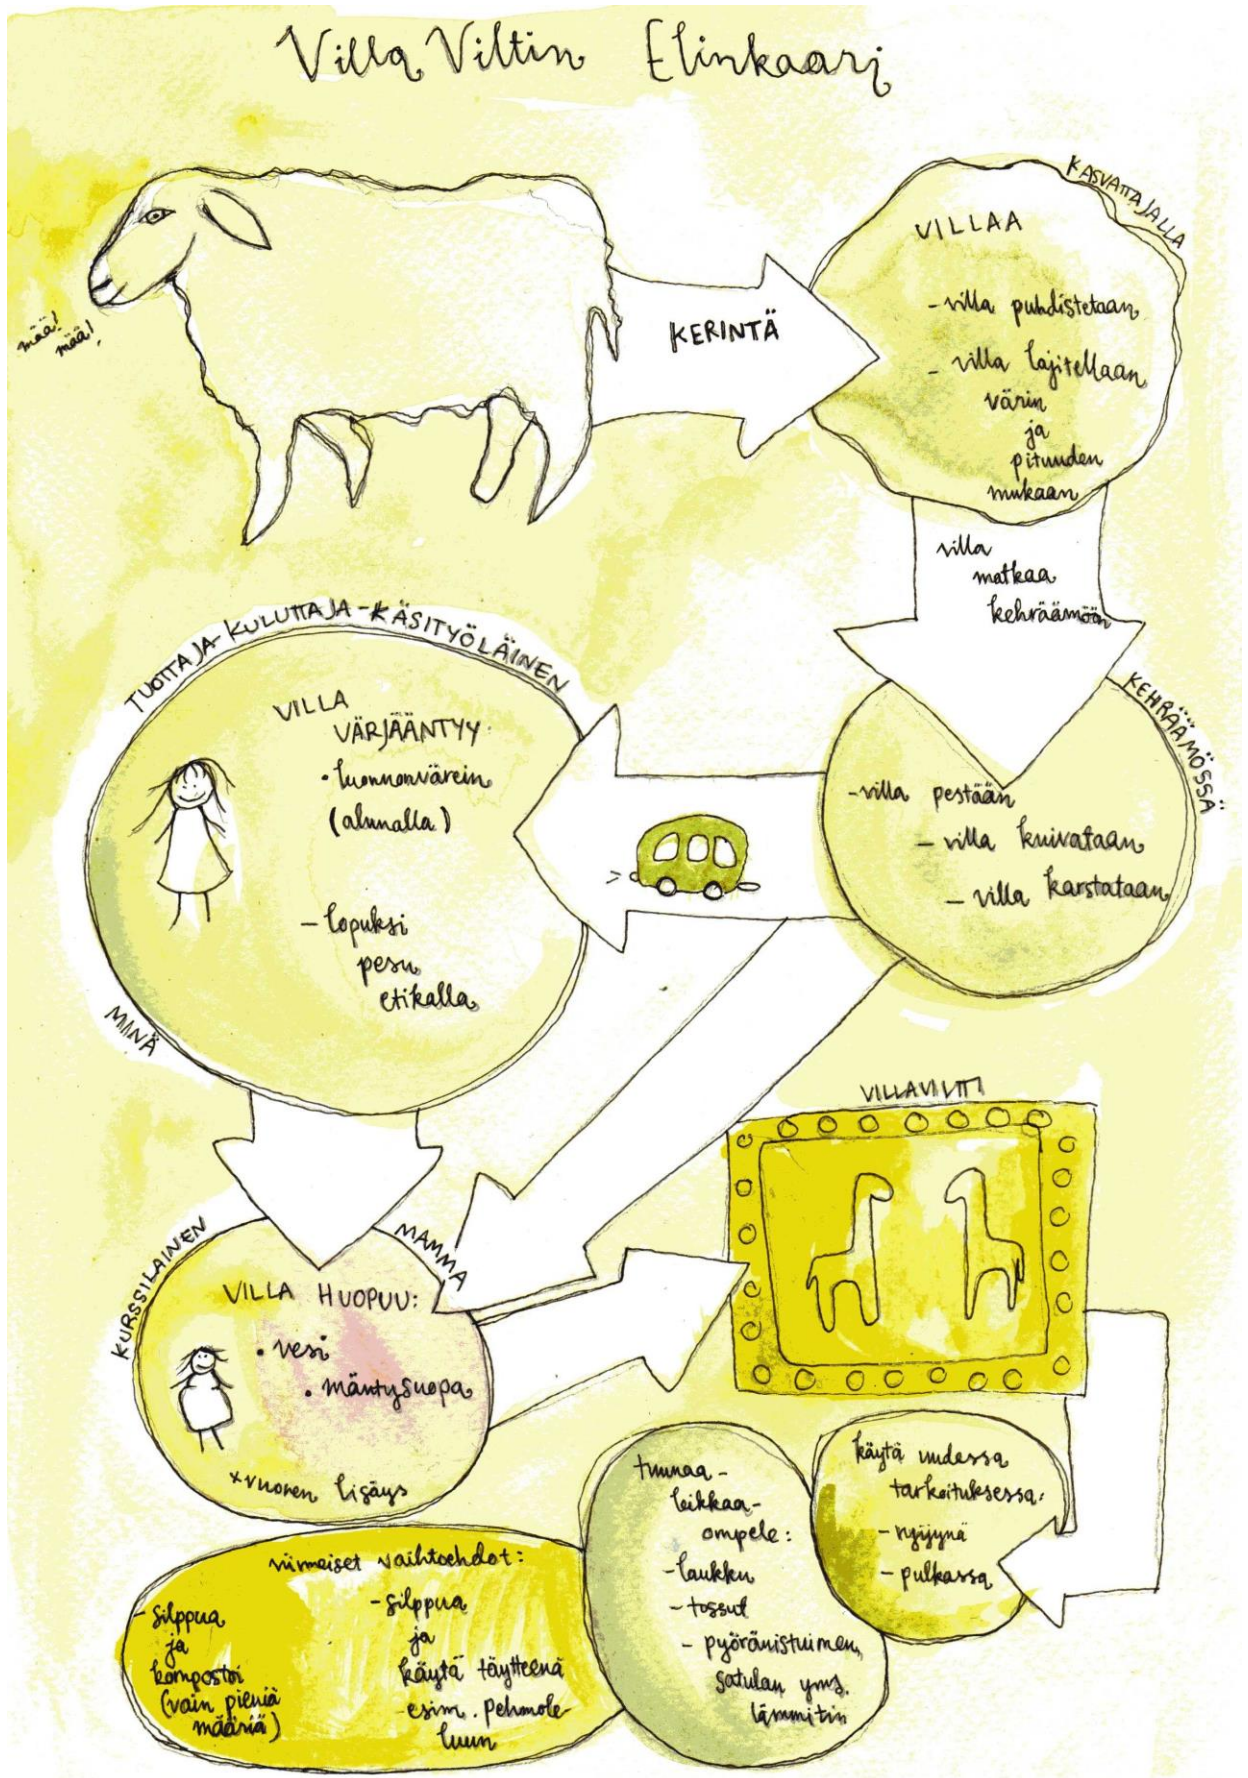 Villa Viltin Elinkaari
mää!
mää!
KERINTÄ
KASVATTAJALLA
VILLAA
- villa puhdistetaan
- villa lajitellaan
värin
ja
pituuden
mukaan
villa
matkaa
kehräämöön
KEHRÄÄMÖSSÄ
- villa pestään
- villa kuivataan
- villa karstataan
TUOTTAJA-KULUTTAJA-KÄSITYÖLÄINEN
VILLA
VÄRJÄÄNTYY:
• luonnonvärein
(alunalla)
- lopuksi
pesu
etikalla
MINÄ
KURSSILAINEN
MAMMA
VILLA HUOPUU:
• vesi
• mäntysuopa
+ vuoren lisäys
VILLAVILTTI
käytä uudessa
tarkoituksessa:
- ryijynä
- pulkassa
tuunaa -
leikkaa -
ompele:
- laukku
- tossut
- pyöränistuimen,
satulan yms.
lämmitin
viimeiset vaihtoehdot:
- silppua
ja
kompostoi
(vain pieniä
määriä)
- silppua
ja
käytä täytteenä
esim. pehmole-
luun